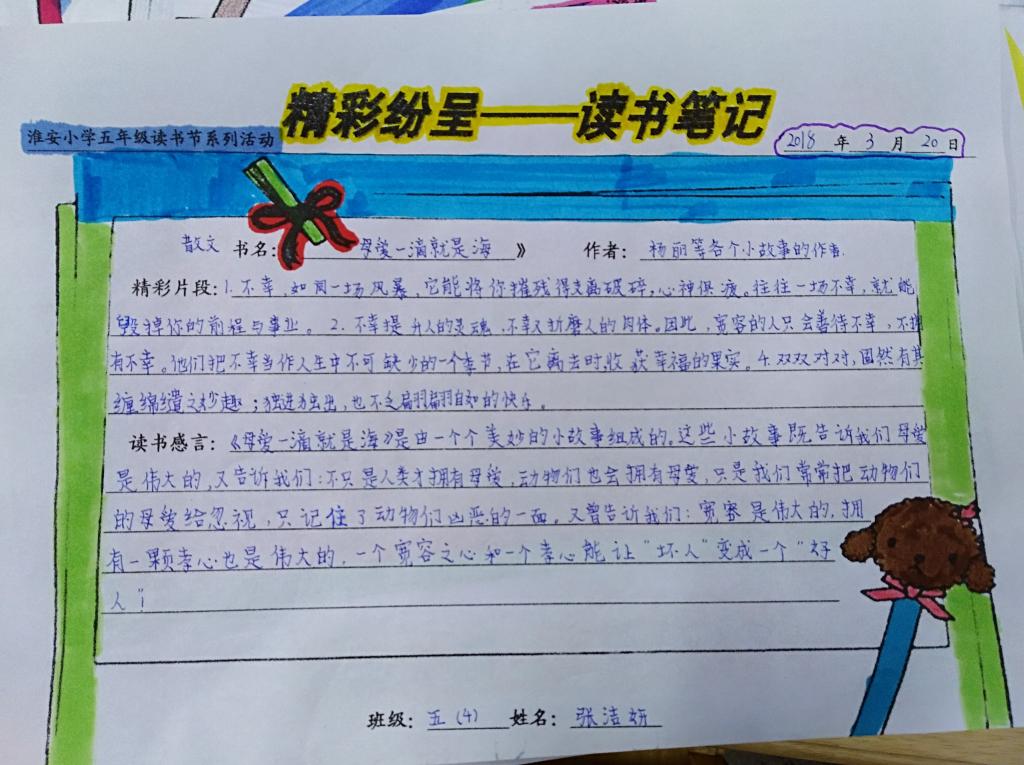 精彩纷呈——读书笔记
淮安小学五年级读书节系列活动
2018 年 3 月 20 日
散文 书名： 母爱一滴就是海 》 作者： 杨丽等各个小故事的作者.
精彩片段：1.不幸，如同一场风暴，它能将你摧残得支离破碎，心神俱疲。往往一场不幸，就能
毁掉你的前程与事业。2.不幸提升人的灵魂，不幸又折磨人的肉体。因此，宽容的人只会善待不幸，不
有不幸。他们把不幸当作人生中不可缺少的一个季节，在它离去时，收获幸福的果实。4.双双对对，固然有其
缠绵缱之妙趣；独进独出，也不乏翩翩自如的快乐。
读书感言：《母爱一滴就是海》是由一个个美妙的小故事组成的，这些小故事既告诉我们母爱
是伟大的，又告诉我们：不只是人类才拥有母爱，动物们也会拥有母爱，只是我们常常把动物们
的母爱给忽视，只记住了动物们凶恶的一面。又曾告诉我们：宽容是伟大的，拥
有一颗孝心也是伟大的，一个宽容之心和一个孝心能让“坏人”变成一个“好
人”！
班级： 五（4） 姓名： 张洁妍